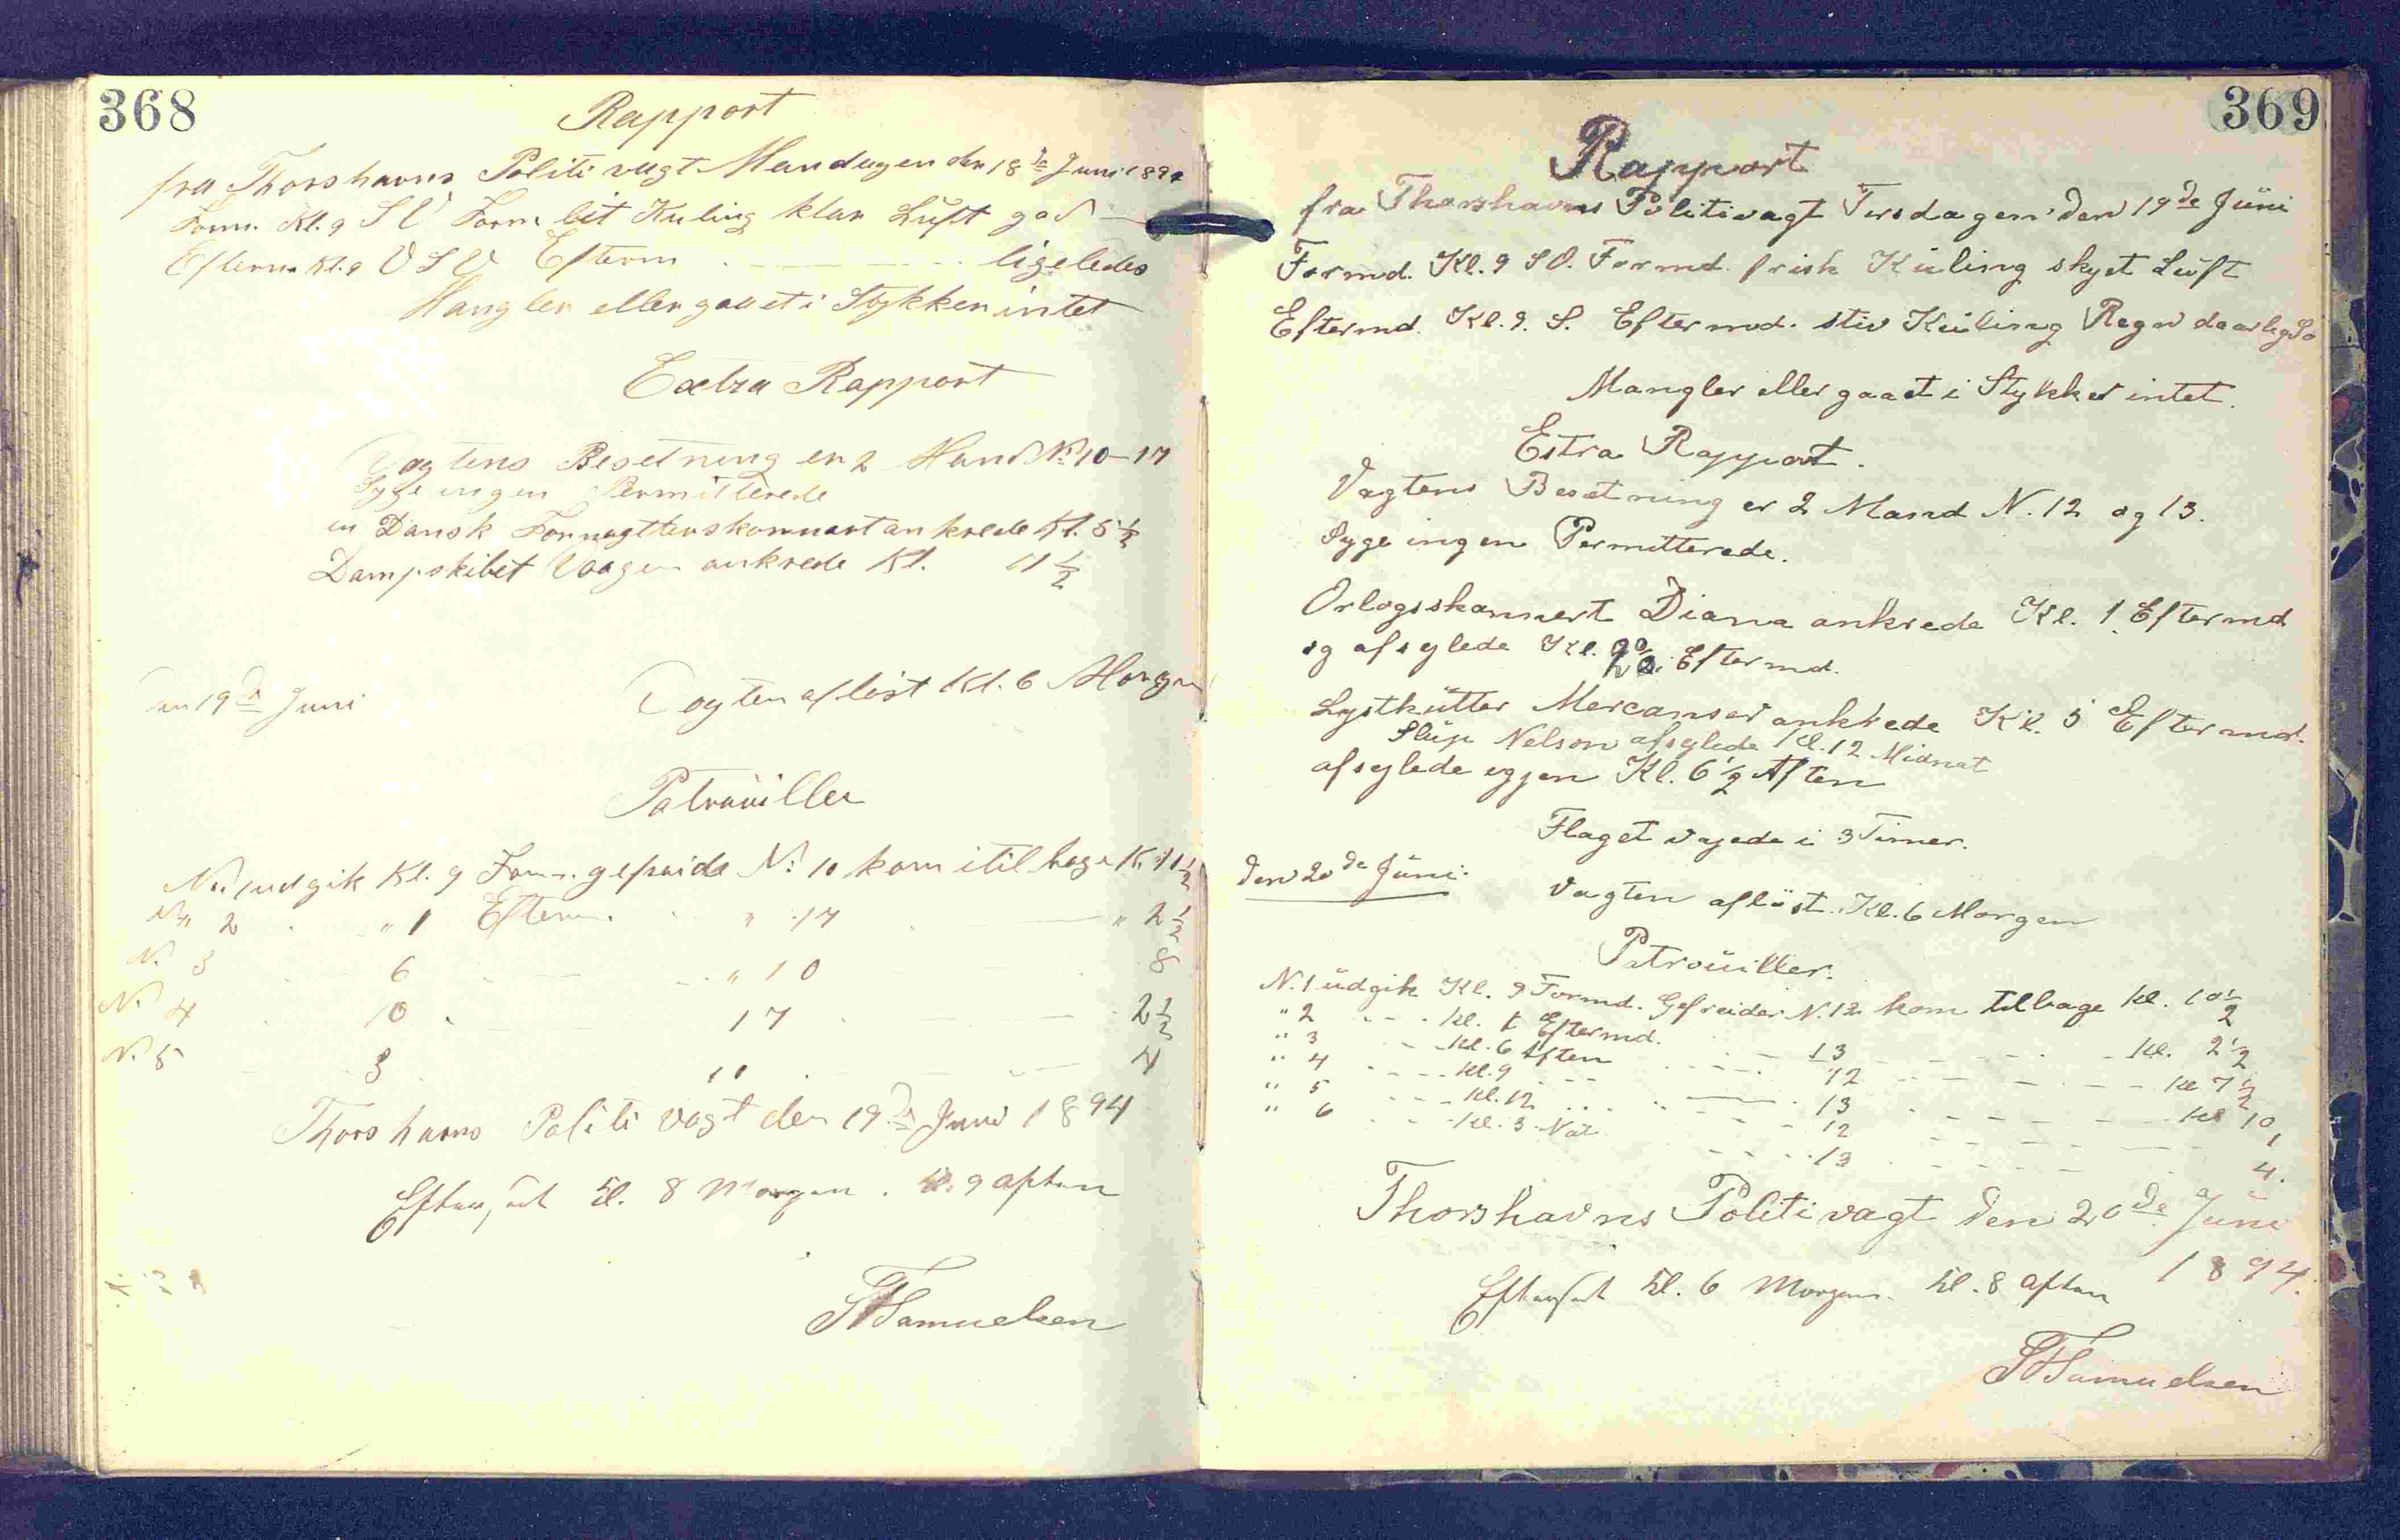 368
Rapport
fra Thorshavns Politivagt Mandagen den 18de Juni 189
Form. Kl. 9 SV Form let Kuling klar Luft god
Efterm Kl. 9 VSV Efterm - ligeledes
Mangler eller gaaet i Stykker intet
Extra Rapport
Vagtens Besetning er 2 Mand No 10-17
Syge ingen Permitterede
en Dansk Skonnert ankrede Kl. 5 1/2
Dampskibet Vaagen ankrede Kl. 11 1/2
den 19de Juni Vagten aflöst Kl. 6 Morgen
Patrouiller
No 1 udgik Kl. 9 Form. gefreider No 10 kom tilbage Kl 11 1/2
No 2 " 1 Efterm. " 17 " 2 1/2
N. 3 6 " 10 8
N. 4 10 17 2 1/2
N. 5 3 10 4
Thorshavns Politi vagt den 19de Juni 1894
Efterseet Kl. 8 Morgen. Kl. 9 aften
Samuelsen
369
Rapport
fra Thorshavns Politivagt Tirsdagen den 19de Jüni
Formd. Kl. 9 SO. Formd. frisk Küling skyet Lüft
Eftermd. Kl. 9. S. Eftermd. stiv Küling Regn daarlig
Mangler eller gaaet i Stykker intet.
Estra Rapport.
Vagtens Besetning er 2 Mand N. 12 og 13.
Syge ingen Permitterede.
Orlogsskonnert Diana ankrede Kl. 1 Eftermd
og afseglede Kl. Eftermd.
Lystkütter ankrede Kl. 5 Eftermd.
Slüp Nelson afseglede Kl. 12 Midnat
afseglede igjen Kl. 6 1/2 Aften
Flaget vajede i 3 Timer.
den 20de Jüni. Vagten aflöst. Kl. 6 Morgen
Patroüiller.
N. 1 üdgik Kl. 9 Formd. Gefreider N. 12 kom tilbage Kl. 10 1/2
" 2 - - - Kl. 1 Eftermd. - 13 - - - Kl. 2 1/2
" 3 - - Kl. 6 Aften - - - 12 - - - Kl 7 1/2
" 4 - - - Kl. 9 - - - 13 - - - Kl 10
" 5 - - - Kl. 12 - - - 12 - - - 1
" 6 - - Kl. 3 Nat - - - 13 - - - 4.
Thorshavns Politivagt den 20de Jüni
1894.
Efterseet Kl. 6 Morgen. Kl. 8 aften
Samuelsen